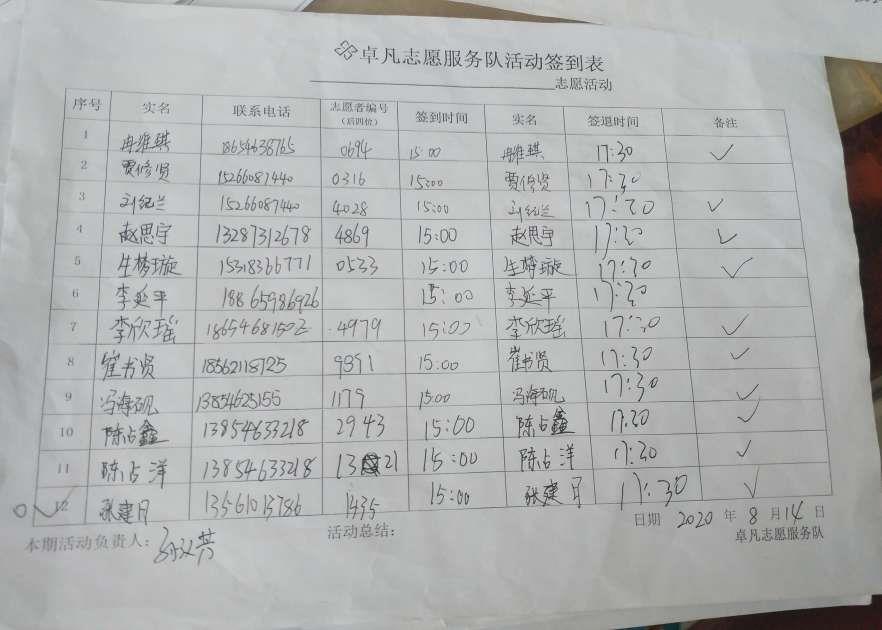 卓凡志愿服务队活动签到表
志愿活动
序号 实名 联系电话 志愿者编号（后四位） 签到时间 实名 签退时间 备注
1 冉维琪 18654638765 0694 15:00 冉维琪 17:30 ✓
2 贾修贤 15266087440 0316 15:00 贾修贤 17:30
3 刘纪兰 15266087440 4028 15:00 刘纪兰 17:30 ✓
4 赵思宇 13287312678 4869 15:00 赵思宇 17:30 ✓
5 生梦璇 15318366771 0533 15:00 生梦璇 17:30 ✓
6 李延平 18865986926 15:00 李延平 17:30
7 李欣瑶 18654681502 4979 15:00 李欣瑶 17:30 ✓
8 崔书贤 18562118725 9391 15:00 崔书贤 17:30 ✓
9 冯海矾 13854625155 1179 15:00 冯海矾 17:30 ✓
10 陈占鑫 13854633218 2943 15:00 陈占鑫 17:30 ✓
11 陈占洋 13854633218 13 21 15:00 陈占洋 17:30 ✓
12 张建日 13561013786 1435 15:00 张建日 17:30 ✓
本期活动负责人： 活动总结： 日期 2020 年 8 月 14 日
卓凡志愿服务队